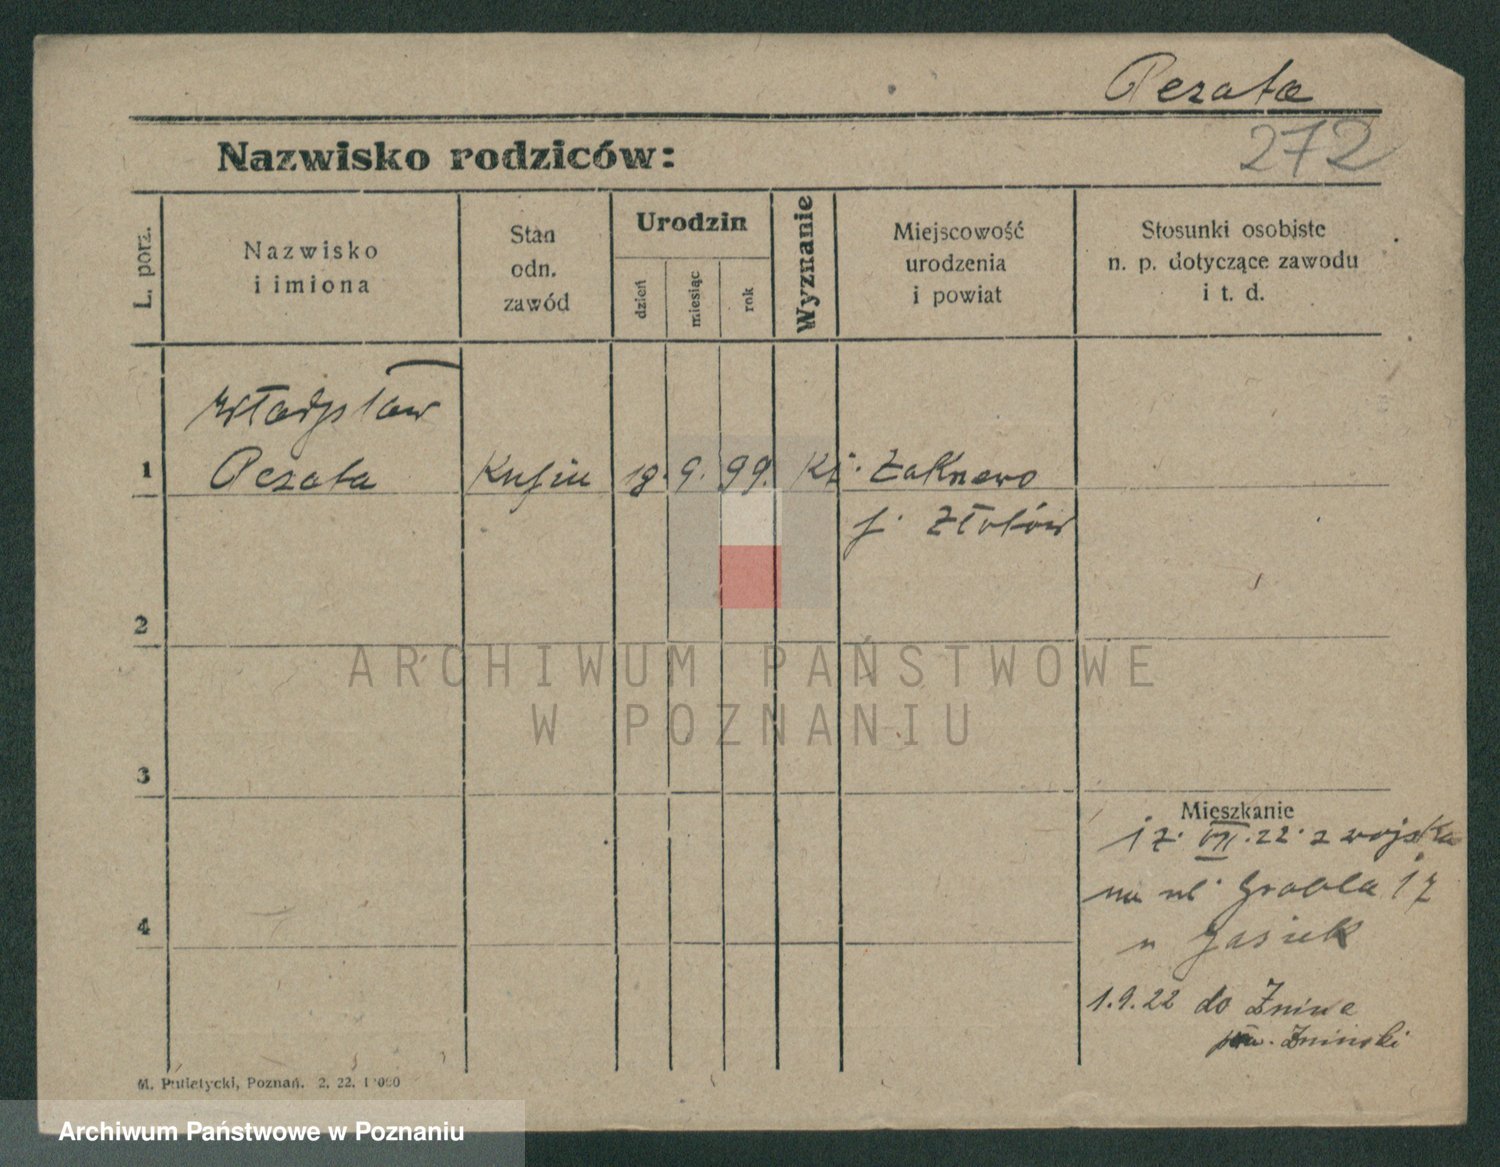 Pezała
272
Nazwisko rodziców:
L. porz.
Nazwisko
i imiona
Stan
odn.
zawód
Urodzin
dzień
miesiąc
rok
Wyznanie
Miejscowość
urodzenia
i powiat
Stosunki osobiste
n. p. dotyczące zawodu
i t. d.
Władysław
1 Pezała 18. 9. 99. Kt. Zakrzewo
Złotów
2
3
4
Mieszkanie
17. VII. 22. z wojska
na ul. Grobla 17
u Jasiek
1.9.22 do Żnina
pow. Żniński
M. Putiatycki, Poznań. 2. 22.
ARCHIWUM PAŃSTWOWE
W POZNANIU
Archiwum Państwowe w Poznaniu